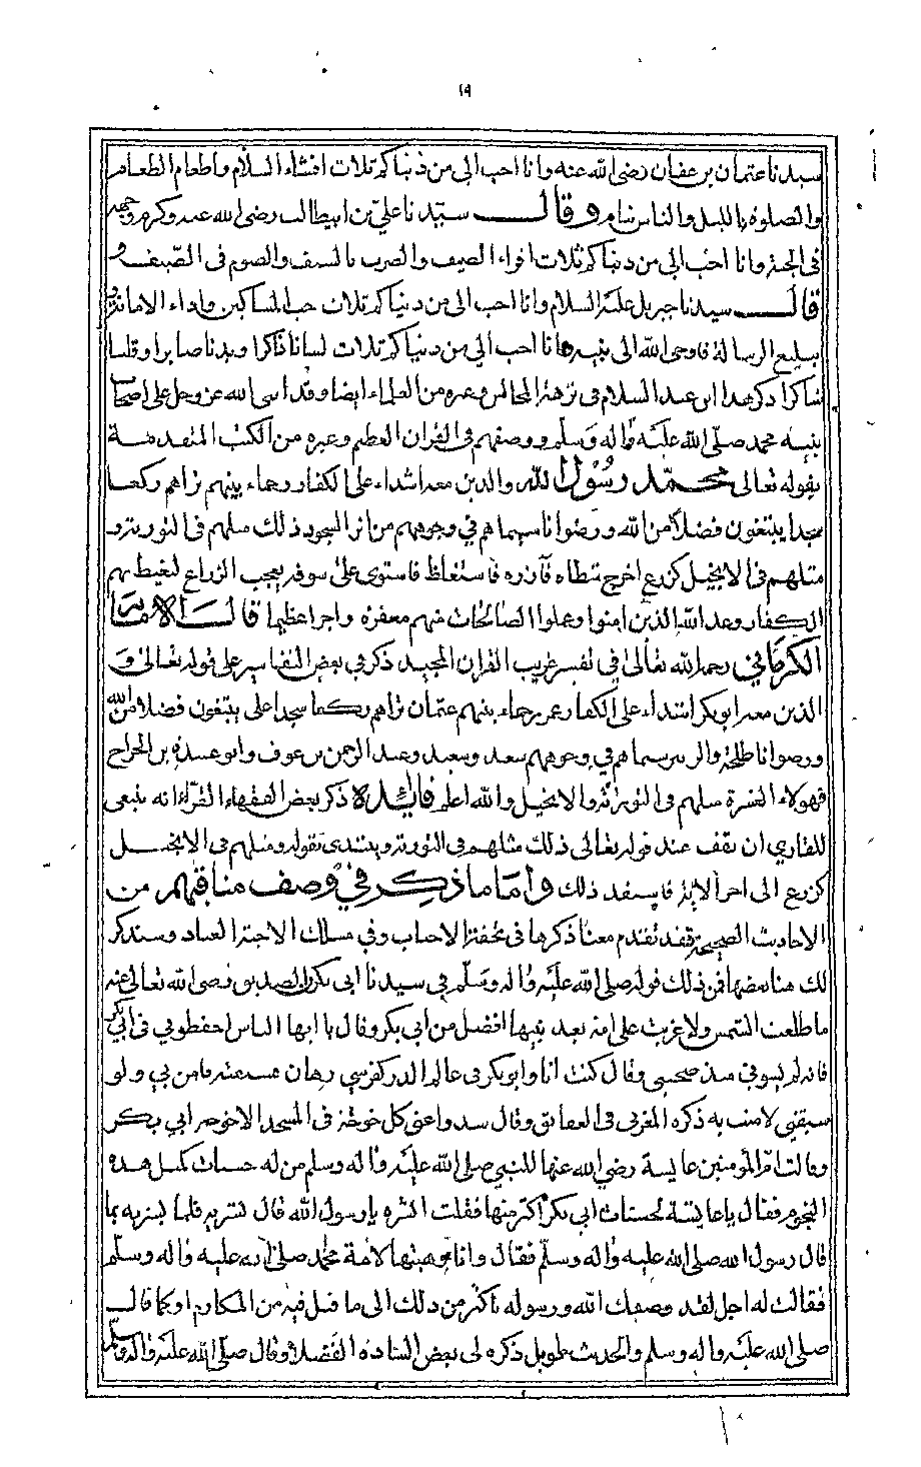 ١٩
سيدنا عثمان بن عفان رضي الله عنه وانا احب الى من دنياكم ثلاث افشاء السلام واطعام الطعام
والصلوة بالليل والناس نيام وقال سيدنا علي بن ابيطالب رضى الله عنه وكرم وجهه
فى الجنة وانا احب الى من دنياكم ثلاث اقراء الضيف والضرب بالسيف والصوم فى الصيف و
قال سيدنا جبريل عليه السلام وانا احب الى من دنياكم ثلاث حب المساكين واداء الامانة و
تبليغ الرسالة فاوحى الله الى نبيه وانا احب الى من دنياكم ثلاث لسانا ذاكرا وبدنا صابرا وقلبا
شاكرا ذكر هذا ابن عبد السلام فى نزهة المجالس وغيره من العلماء ايضا وقد اثنى الله عز وجل على اصحاب
نبيه محمد صلى الله عليه واله وسلم ووصفهم فى القران العظيم وغيره من الكتب المتقدمة
بقوله تعالى محمد رسول الله والذين معه اشداء على الكفار رحماء بينهم تراهم ركعا
سجدا يبتغون فضلا من الله ورضوانا سيماهم في وجوههم من اثر السجود ذلك مثلهم فى التورية و
مثلهم فى الانجيل كزرع اخرج شطاه فآزره فاستغلظ فاستوى على سوقه يعجب الزراع ليغيظ بهم
الكفار وعد الله الذين امنوا وعملوا الصالحات منهم مغفرة واجرا عظيما قال
الكرماني رحمه الله تعالى في تفسير غريب القران المجيد ذكر في بعض التفاسير على قوله تعالى و
الذين معه ابو بكر اشداء على الكفار عمر رحماء بينهم عثمان تراهم ركعا سجدا على يبتغون فضلا من الله
ورضوانا طلحة والزبير سيماهم في وجوههم سعد وسعيد وعبد الرحمن بن عوف وابو عبيدة بن الجراح
فهولاء العشرة مثلهم فى التورية والانجيل والله اعلم فائدة ذكر بعض الفقهاء القراء انه ينبغى
للقاري ان يقف عند قوله تعالى ذلك مثلهم في التورية ويبتدي بقوله ومثلهم فى الانجيل
كزرع الى اخر الاية ذلك واما ما ذكر في وصف مناقبهم من
الاحاديث الصحيحة فقد تقدم معنا ذكرها فى تحفة الاحباب وفي مسلك وسنذكر
لك هنا بعضها فمن ذلك قوله صلى الله عليه واله وسلم في سيدنا ابى بكر الصديق رضى الله تعالى عنه
ما طلعت الشمس ولا غربت على امة بعد نبيها افضل من ابي بكر وقال يا ايها الناس احفظوني فى ابي بكر
فانه لم يسوني منذ صحبني وقال كنت انا وابو بكر فى عالم الذر كفرسي رهان فامن بي ولو
سبقني لامنت به ذكره فى العقائق وقال سدوا عني كل خوخة فى المسجد الا خوخة ابي بكر
وقالت ام المؤمنين عايشة رضي الله عنها للنبي صلى الله عليه واله وسلم من له حسنات كمثل هذه
النجوم فقال ياعايشة لحسنات ابى بكر اكثر منها فقلت اثره يا رسول الله قال
قال رسول الله صلى الله عليه واله وسلم فقال وانا لامة محمد صلى الله عليه واله وسلم
فقالت له اجل لقد وصفك الله ورسوله باكثر من ذلك الى ما قيل فيه من المكارم او كما قال
صلى الله عليه واله وسلم والحديث طويل ذكره لى بعض السادة الفضلاء وقال صلى الله عليه واله وسلم